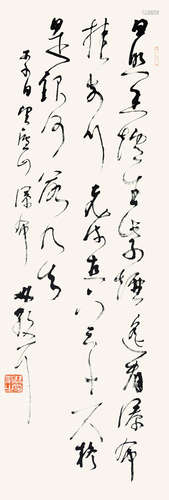 日照香爐生紫煙遙看瀑布
挂前川飛流直下三千尺疑
是銀河落九天
李白望廬山瀑布 林散耳